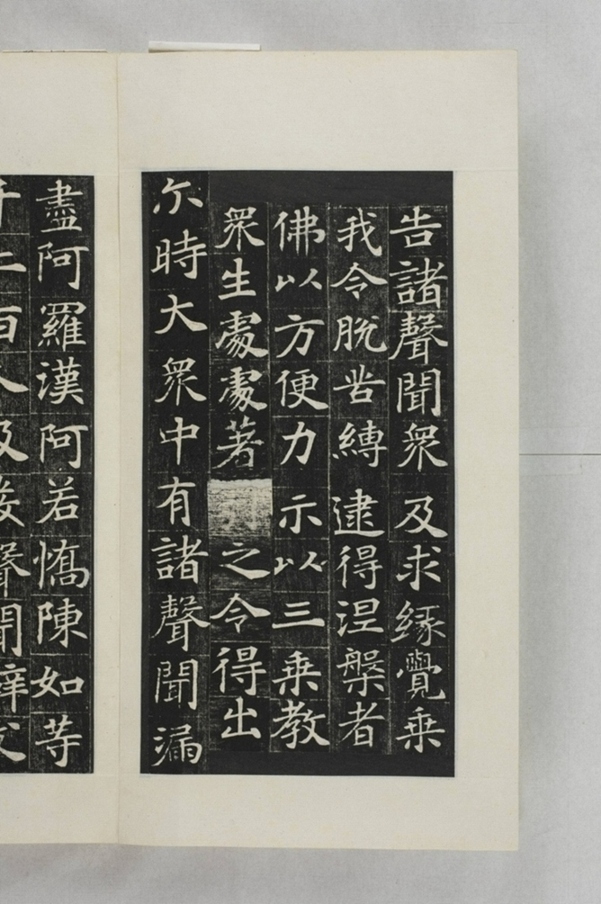 告諸聲聞眾 及求緣覺乘
我令脫苦縛 逮得涅槃者
佛以方便力 示以三乘教
眾生處處著 之令得出
尒時大眾中有諸聲聞漏
盡阿羅漢阿若憍陳如等
千二百人及發聲聞辟支